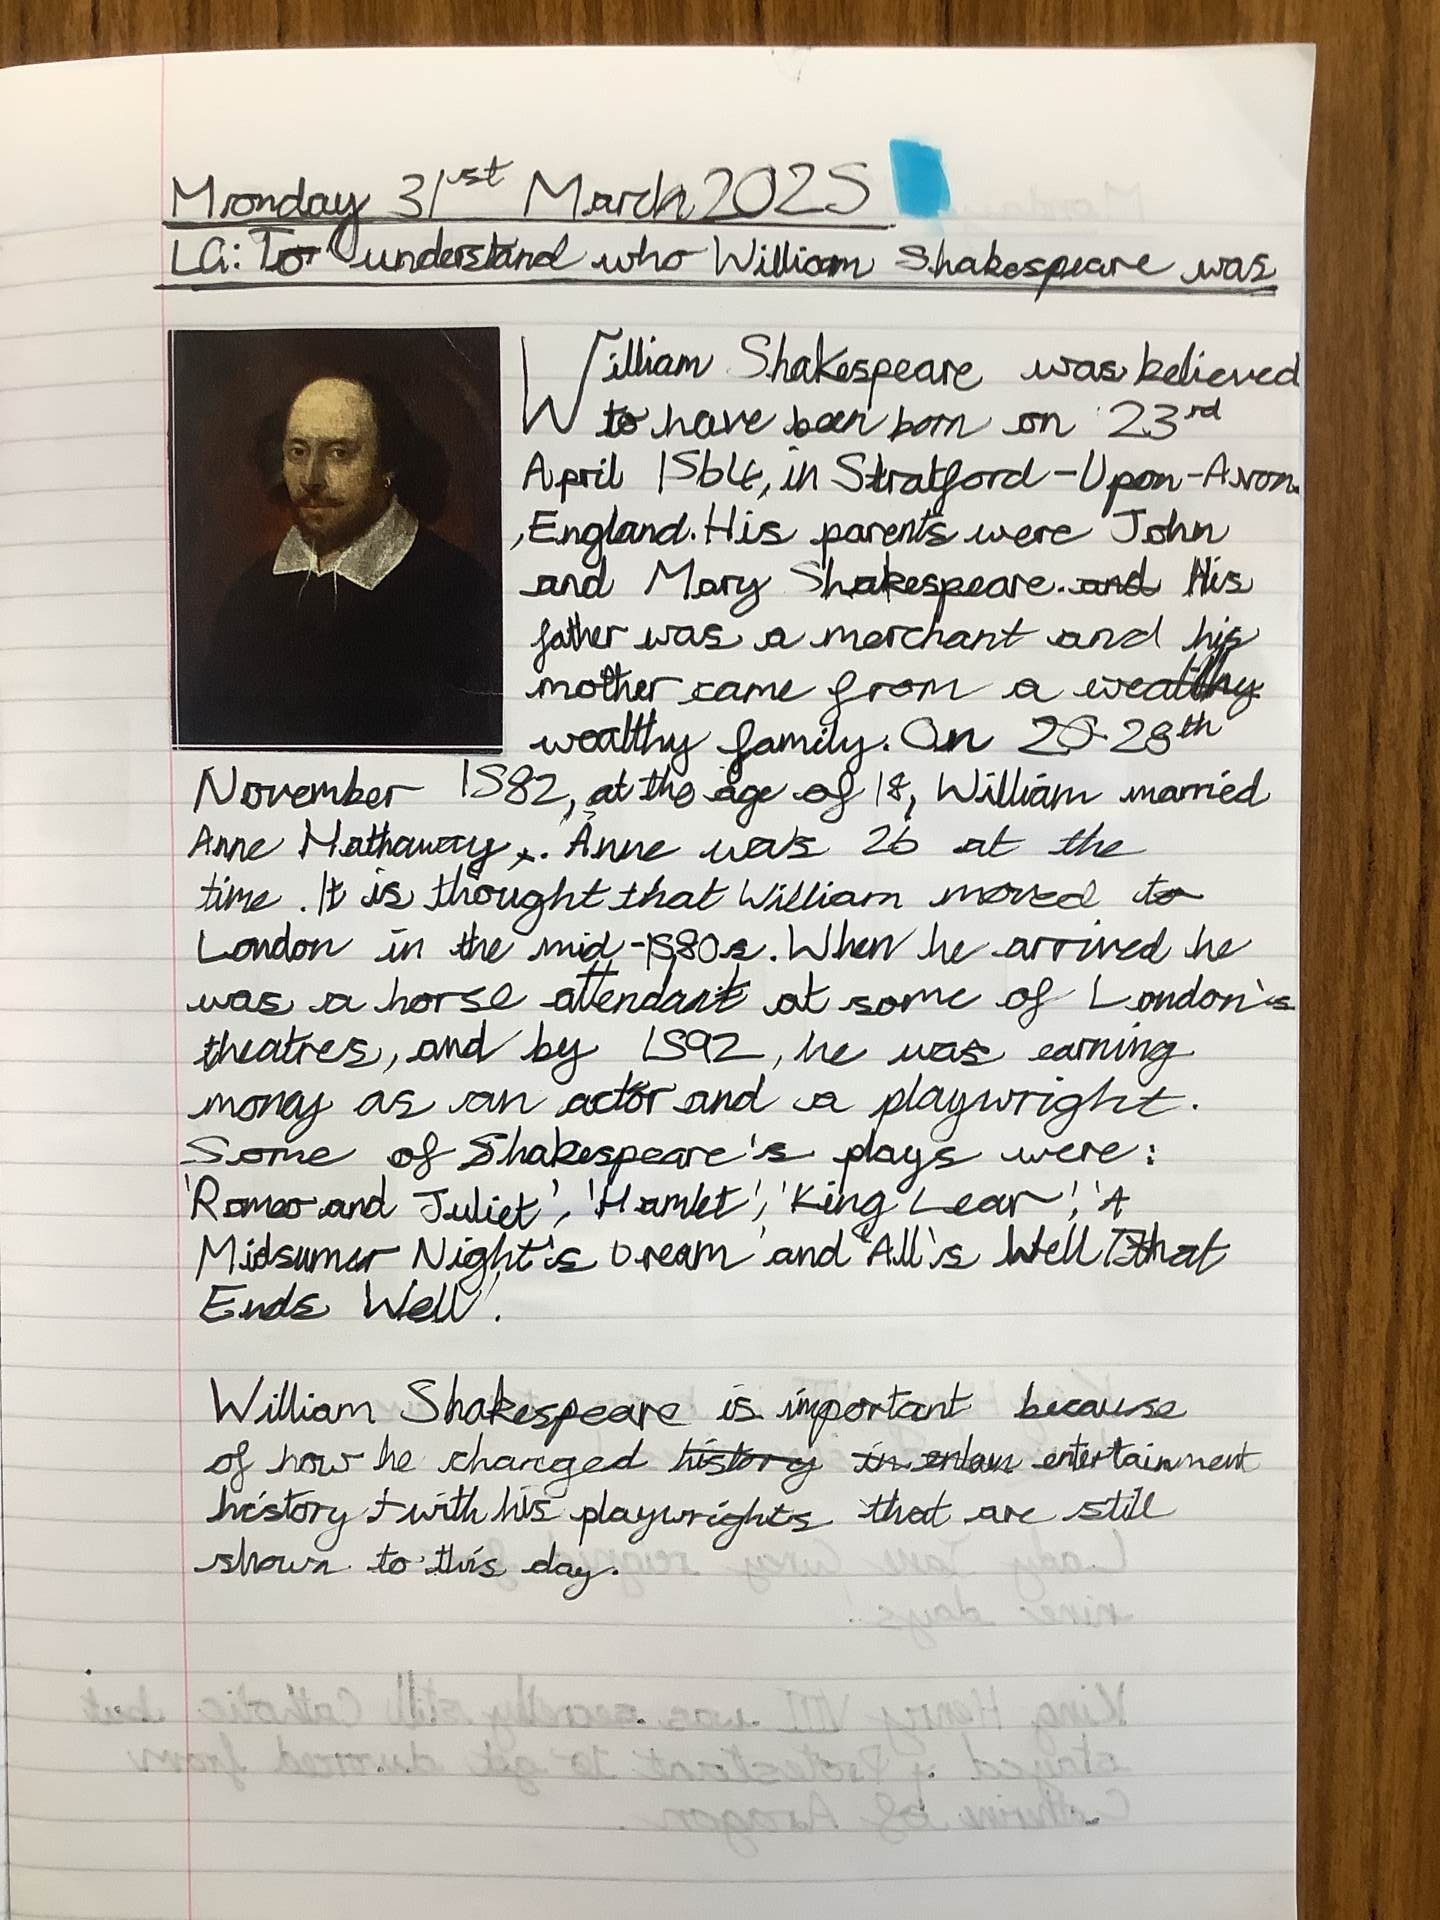 Monday 31st March 2025
LG: To understand who William Shakespeare was
William Shakespeare was believed
to have been born on 23rd
April 1564, in Stratford-Upon-Avon
,England. His parents were John
and Mary Shakespeare. and His
father was a merchant and his
mother came from a wealthy
wealthy family. On 28th
November 1582, at the age of 18, William married
Anne Hathaway. Anne was 26 at the
time. It is thought that William moved to
London in the mid-1580s. When he arrived he
was a horse attendant at some of London's
theatres, and by 1592, he was earning
money as an actor and a playwright.
Some of Shakespeare's plays were:
'Romeo and Juliet', 'Hamlet', 'King Lear', 'A
Midsumer Night's Dream' and 'All's Well That
Ends Well'.
William Shakespeare is important because
of how he changed history in enten entertainment
history with his playwrights that are still
shown to this day.
Lady Jane Grey reigned for
nine days
King Henry VIII was secretly still Catholic but
stayed Protestant to get divorced from
Catherine of Aragon.